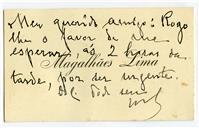 Meu querido amigo: Rogo
lhe o favor de me
esperar, ás 2 horas da
Magalhães Lima
tarde, por ser urgente.